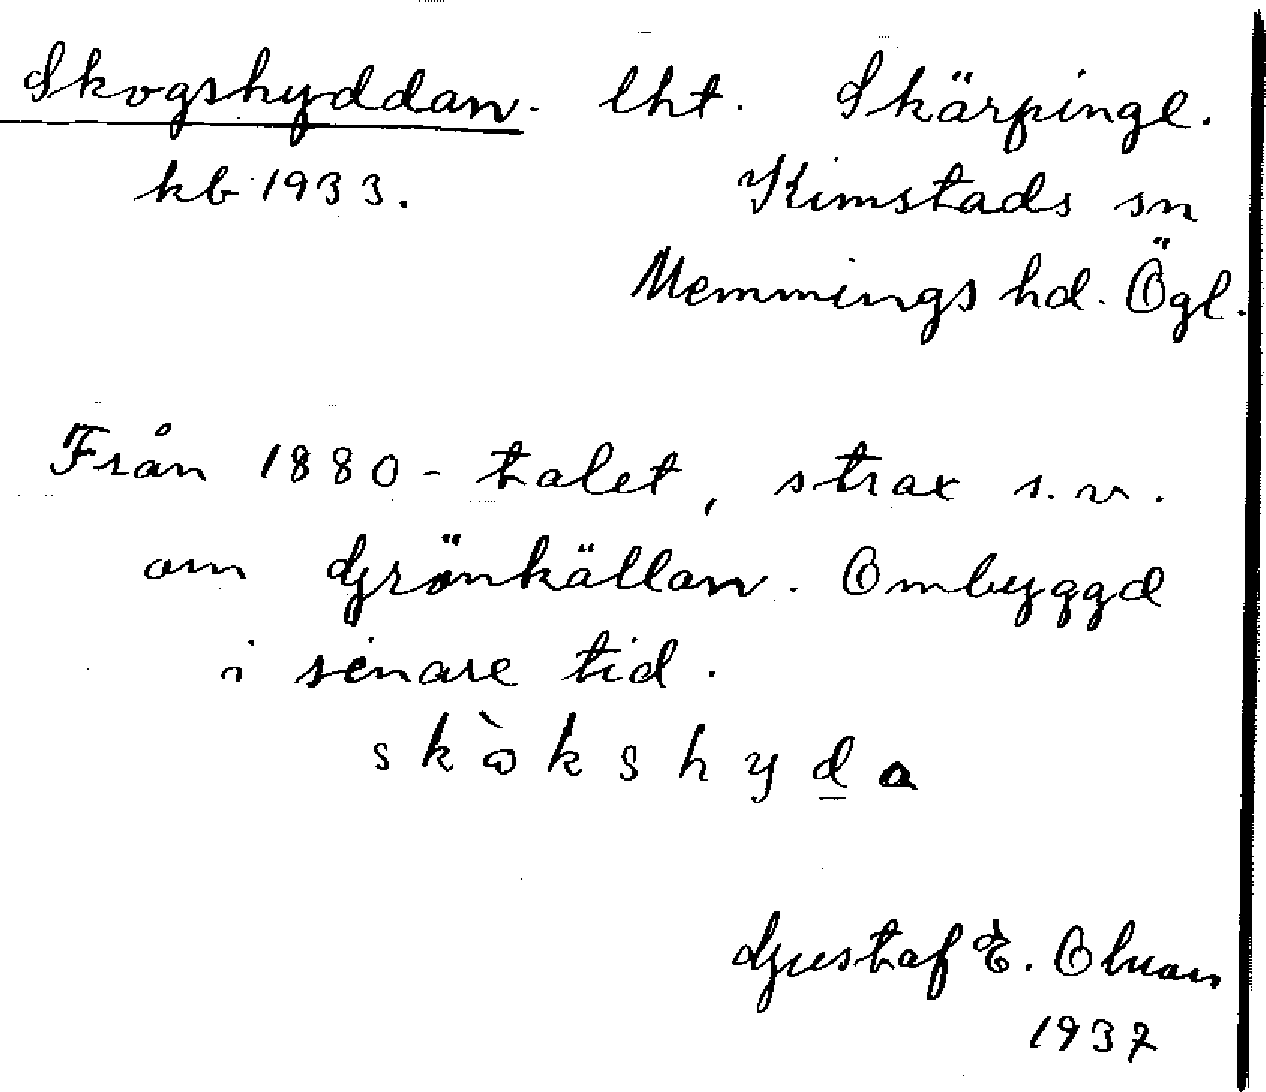 Skogshyddan. lht. Skärpinge.
kb 1933. Kimstads sn
Memmings hd. Ögl.
Från 1880-talet, strax s.v.
om Grönkällan. Ombyggd
i senare tid.
skòkshyda
Gustaf E.
1937